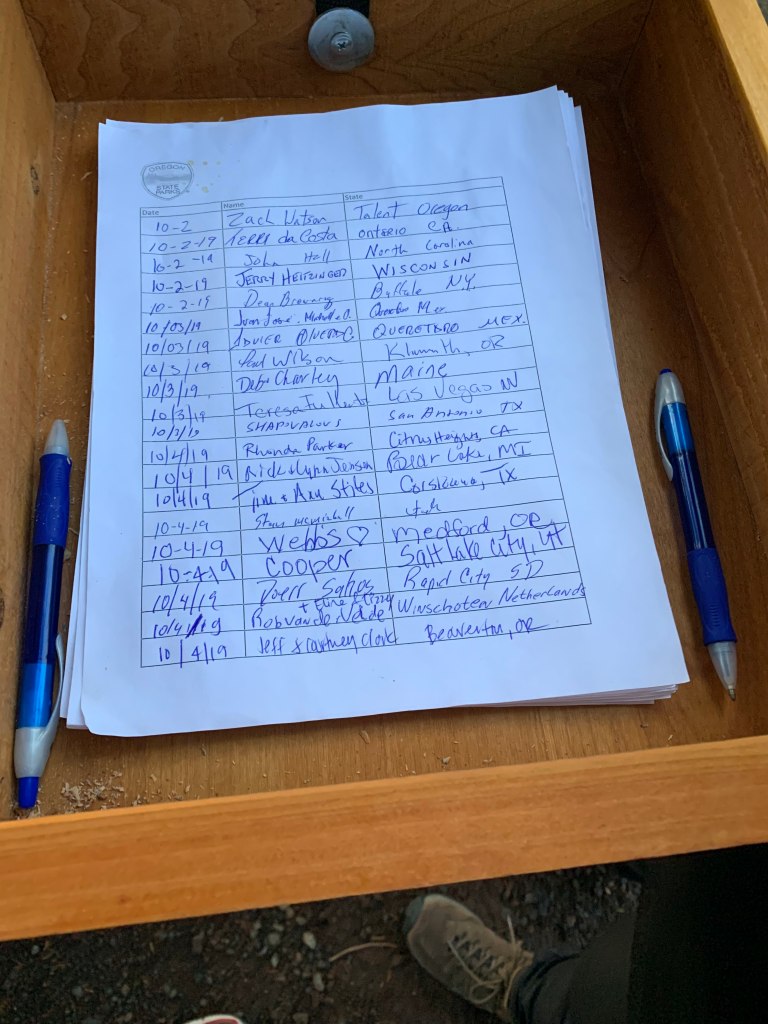 OREGON
STATE
PARKS
Date Name State
10-2 Zack Watson Talent Oregon
10-2-19 TERRI da Costa ONTARIO CA.
10-2-19 John Hall North Carolina
10-2-19 JERRY WISCONSIN
10-2-19 Dean Buffalo NY.
10/03/19 Juan José. Mex.
10/03/19 QUERETARO MEX.
10/3/19 Paul Wilson Klamath, OR
10/3/19 Maine
10/3/19 Teresa Las Vegas N
SHAPOVALOVS San Antonio TX
10/4/19 Rhonda Parker Citrus Heights, CA
10/4/19 Rick & Lynn Jensen Bear Lake, MI
10/4/19 Tim & Ann Stiles Corsicana, TX
10-4-19 Utah
10-4-19 Webbs♡ Medford, OR
10-4-19 Cooper Salt Lake City, UT
10/4/19 Rapid City SD
10/4/19 Winschoten Netherlands
10/4/19 Jeff & Courtney Clark Beaverton, OR